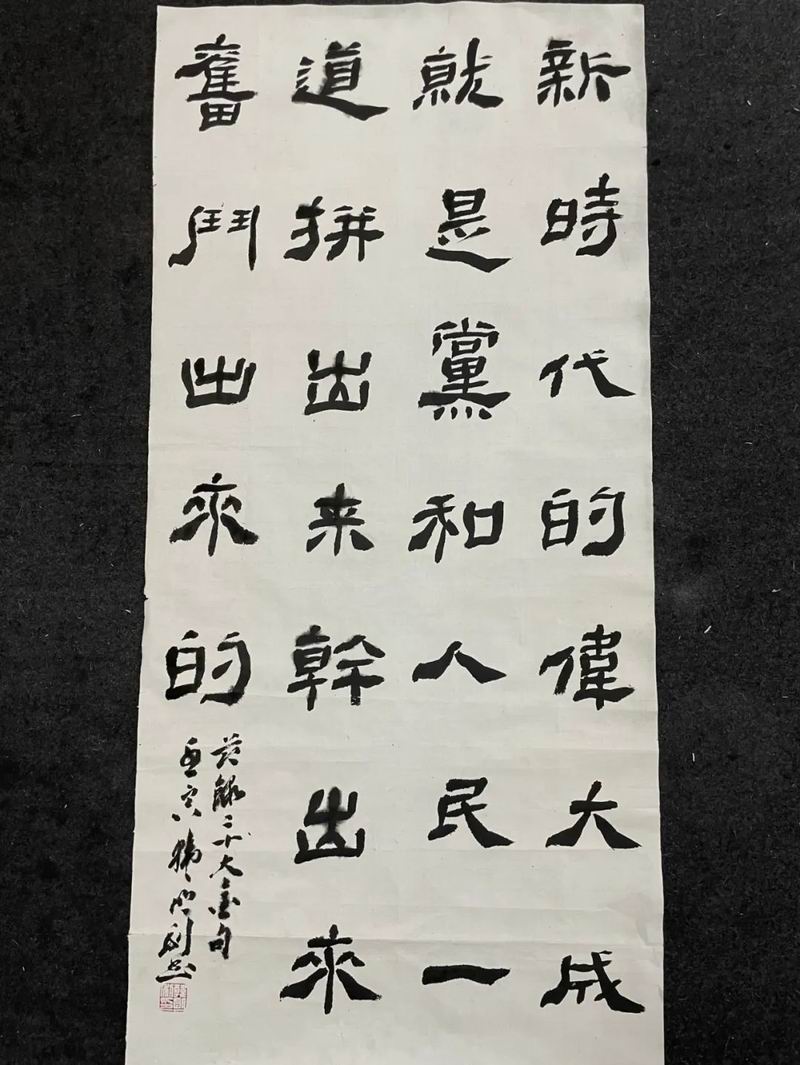 新時代的偉大成
就是黨和人民一
道拼出来幹出來
奮鬥出來的
錄二十大金句
壬寅